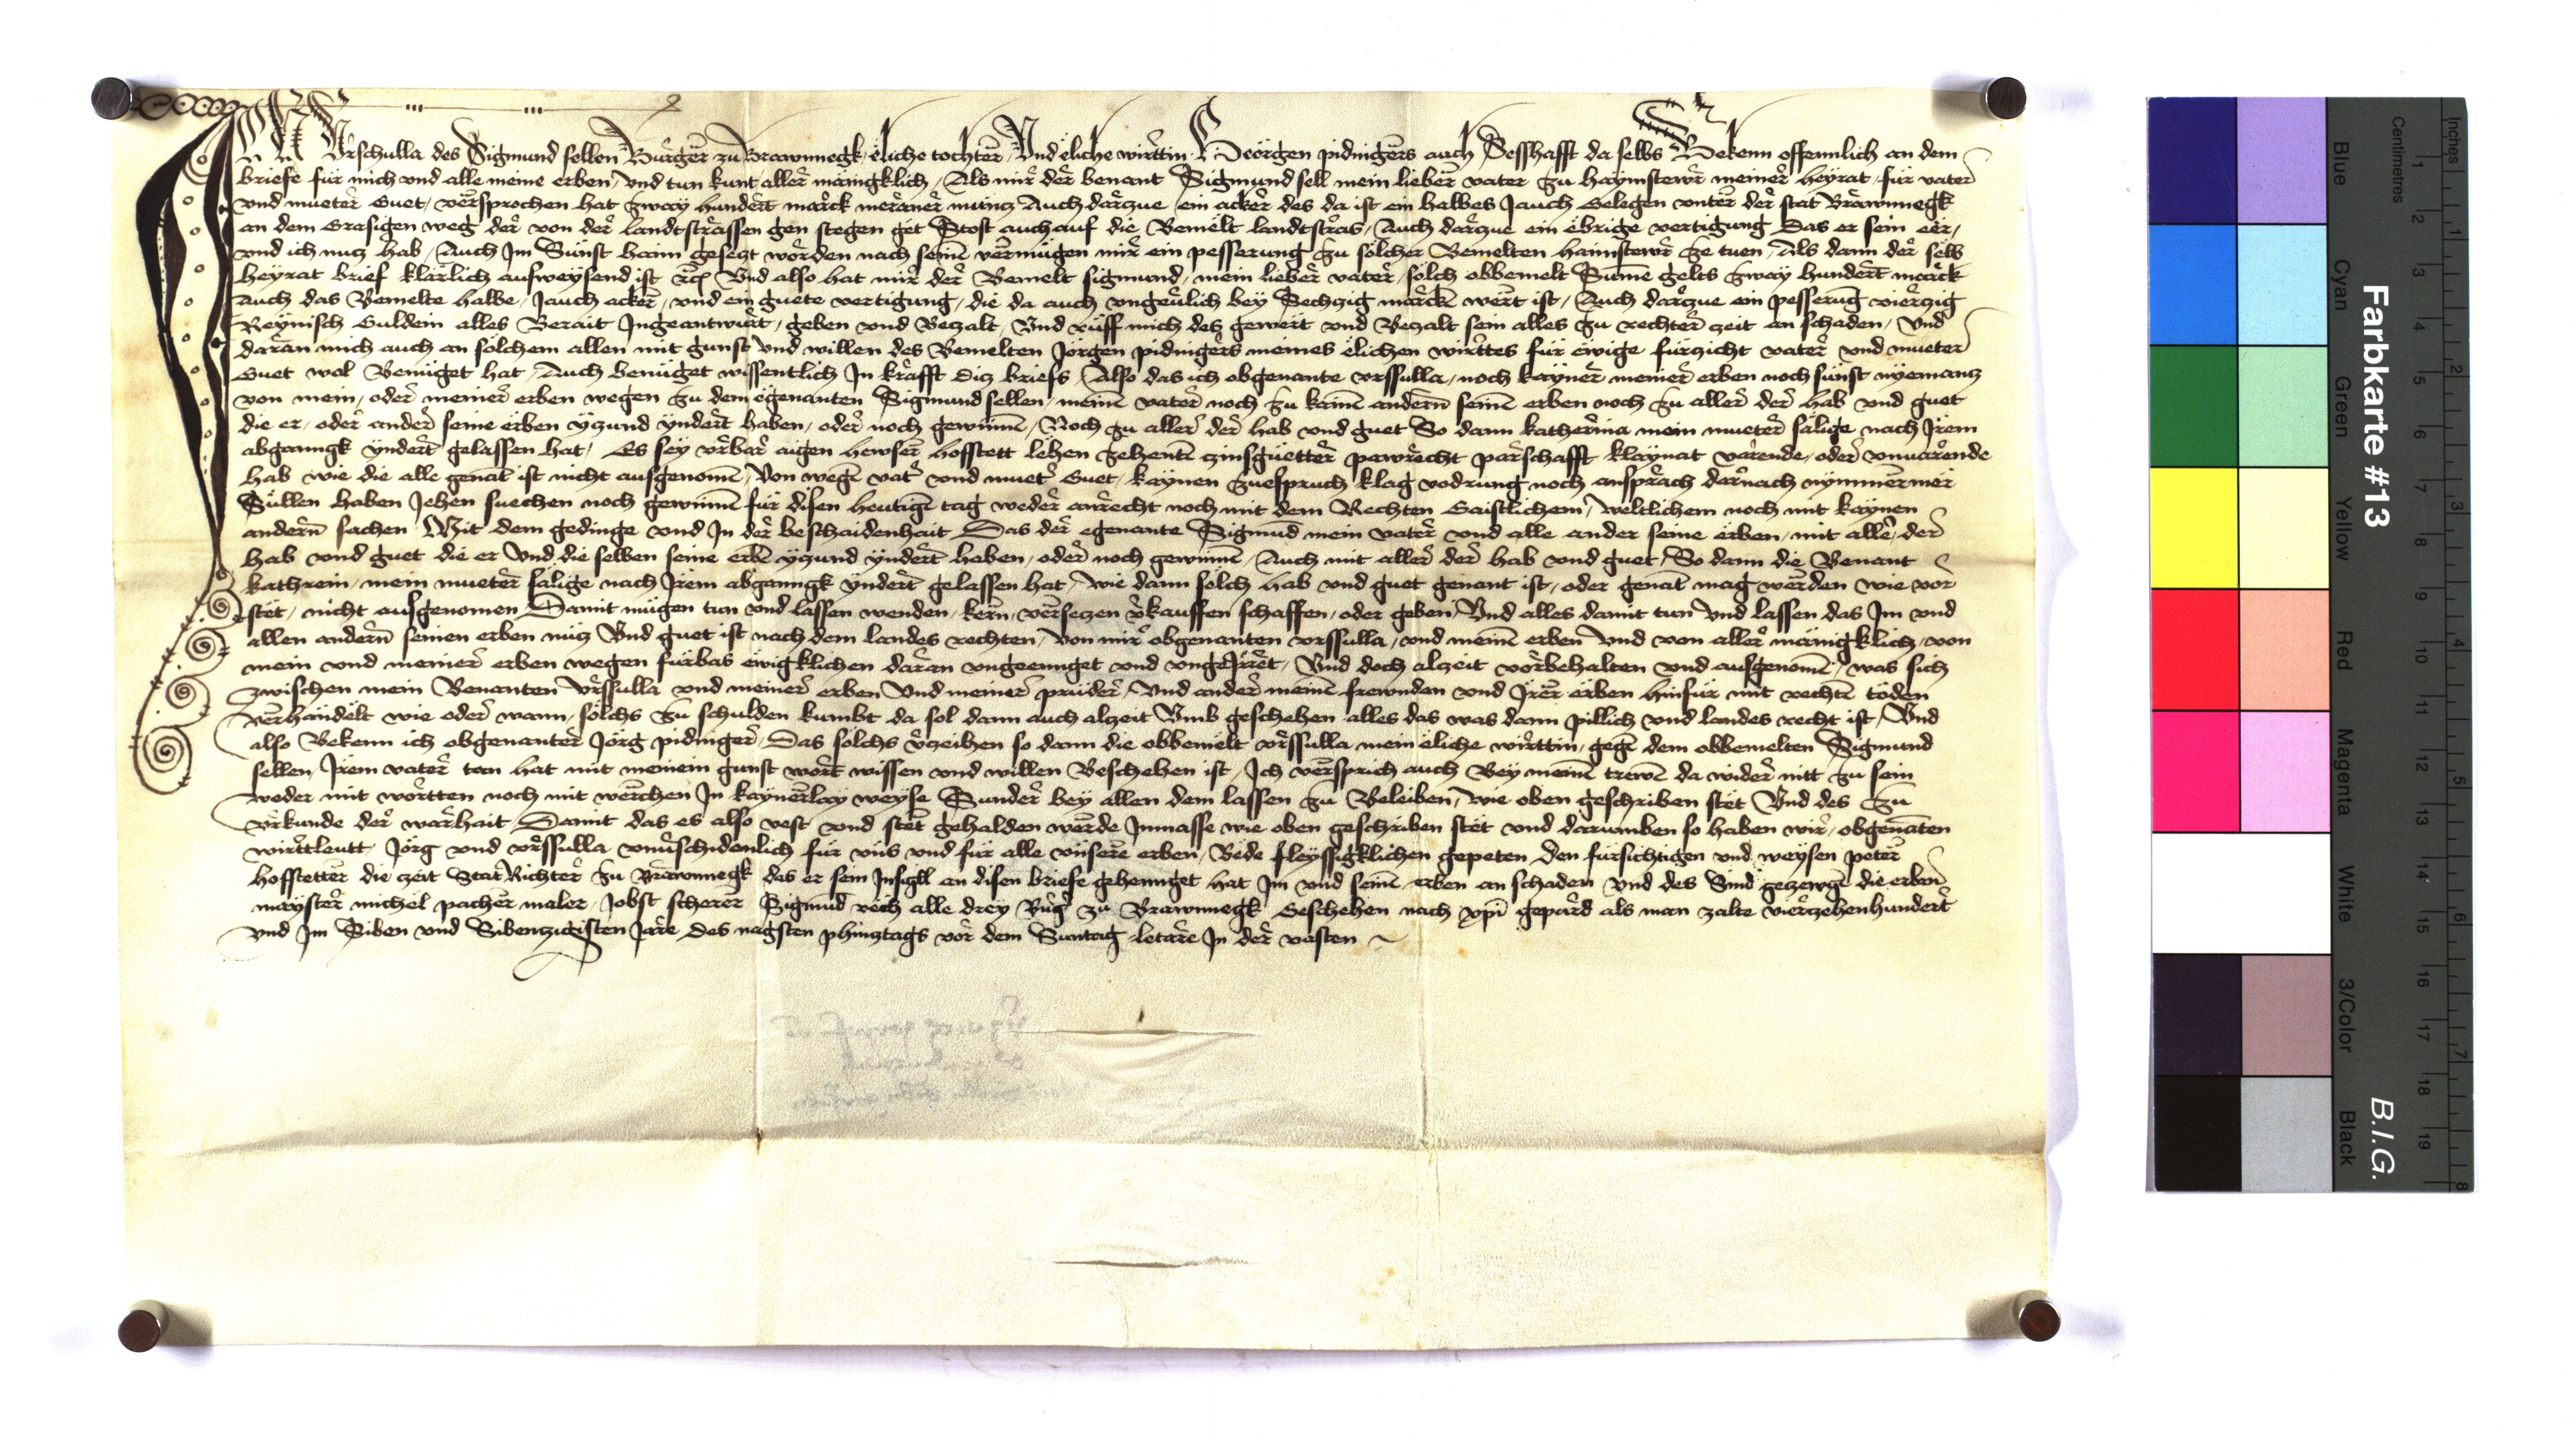 Ich Vrschulla des Sigmund sellen Burger zu Brawnnegk eliche tochter Vnd eliche wirttin Georgen pidnigers auch Sesshafft da selbs Bekenn offennlich an dem
briefe für mich vnd alle meine erben vnd tun kunt aller mänigklich Als mir der benant Sigmund sell mein lieber vater zu haymstewr meiner heyrat für vater
vnd mueter Guet versprochen hat zway hundert marck meraner münz Auch darzue ein acker des da ist ein halbes Jauch Gelegen vnter der stat Brawnnegk
an dem Grasigen weg der von der landtstrassen gen stegen get Stost auch auf die Bemelt landtstras Auch darzue ein ebrige vertigung Das er sein eer
vnd ich nuz hab Auch Im Sünst haim gesetzt worden nach seinē vermügen mir ein pesserung zu solcher Bemelten haimstewr ze tuen Als dann der selb
heyrat brief klarlich ausweysend ist Vnd also hat mir der Bemelt Sigmund mein lieber vater solch obbemelt Sume gelts zway hundert marck
Auch das Bemelte halbe Jauch acker vnd ein guete vertigung die da auch vngeuärlich bey Sechzig marckē wert ist Auch darzue ein pesserūg vierzig
Reynisch Guldein alles Berait Ingeantwurt geben vnd Bezalt Vnd rüff mich des gewert vnd Bezalt sein alles zu rechter zeit an schaden Vnd
daran mich auch an solchem allen mit gunst vnd willen des Bemelten Jörgen pidnigers meines elichen wirttes für ewige fürzicht vater vnd mueter
Guet wol Benüget hat Auch benüget wissentlich In krafft diz briefs Also das ich obgenante vrssulla noch kayner meiner erben noch sünst nyemanz
von mein oder meiner erben wegen zu dem egenanten Sigmund sellen meinē vater noch zu kainē andern seinē erben noch zu aller der hab vnd guet
die er oder ander seine erben yzund yndert haben oder noch gewinnē Noch zu aller der hab vnd guet So dann katherina mein mueter sälige nach Irem
abganngk yndert gelassen hat Es sey vrbar aigen hewser hofstett lehen zehentē zinsguetter pawrecht parschafft klaynat varende oder vnuarende
hab wie die alle genāt ist nicht ausgenomē Von wegē vatr vnd muetr Guet kaynen zuespruch klag vodrung noch ansprach darnach nymmermer
Süllen haben Jehen suechen noch gewinnē für disen heutigē tag weder anrecht noch mit dem Rechten Gaistlichem weltlichem noch mit kaynen
andern sachen Mit dem gedinge vnd In der beschaidenhait Das der egenante Sigmūd mein vater vnd alle ander seine erben mit aller der
hab vnd guet die er Vnd die selben seine erbē yzund yndert haben oder noch gewinnē Auch mit aller der hab vnd guet So dann die Benant
kathrein mein mueter sälige nach Irem abganngk yndert gelassen hat wie dann solch hab vnd guet genant ist oder genāt mag werden wie vor
stet nicht ausgenomen Damit mügen tun vnd lassen wenden kern versetzen vkauffen schaffen oder geben Vnd alles damit tun Vnd lassen das Im vnd
allen andern seinen erben nüz Vnd guet ist nach dem landes rechten Von mir obgenanten vrssulla vnd meinē erben Vnd von aller mänigklich von
mein vnd meiner erben wegen fürbas ewigklichen daran vngeennget vnd vngeirret Vnd doch alzeit vorbehalten vnd ausgenomē was sich
zwischen mein Benanten Vrssulla vnd meiner erben Vnd meiner prüder Vnd ander meinē frewnden vnd Irer erben hinfür mit rechtē töden
verhandelt wie oder wann solchs zu schulden kumbt da sol dann auch alzeit Vmb geschehen alles das was dann pillich vnd landes recht ist Vnd
also Bekenn ich obgenanter Jörg pidniger Das solchs vzeihen so dann die obbemelt vrssulla mein eliche wirttin gegē dem obbemelten Sigmund
sellen Irem vater tan hat mit meinem gunst wort wissen vnd willen Beschehen ist Ich versprich auch Bey meinē trewē da wider nitt zu sein
weder mit wortten noch mit werchen In kaynerlay weyse Sunder bey allen dem lassen zu Beleiben wie oben geschriben stet Vnd des zu
vrkunde der warhait Damit das es also vest vnd stet gehalden werde Inmasse wie oben geschriben stet vnd darumben so haben wir obgenāten
wirttleutt Jörg vnd vrssulla vnuschidenlich für vns vnd für alle vnsere erben Bede fleyssigklichen gepeten den fürsichtigen vnd weysen peter
hofstetter die zeit Stat Richter zu Brawnnegk das er sein Insigll an disen briefe gehennget hat Im vnd seinē erben an schaden Vnd des Sind gezewgē die erbn
mayster michel pacher maler Jobst scherer Sigmūd rech alle drey Burg zu Brawnnegk Geschehen nach xpi gepurd als man zalte vierzehenhundert
vnd Im Siben vnd Sibenzigisten Jare des nagsten phinztags vor dem Suntag letare In der vasten
Farbkarte #13
B.I.G.
Centimetres
Inches
Blue
Cyan
Green
Yellow
Red
Magenta
White
3/Color
Black
1 2 3 4 5 6 7 8 9 10 11 12 13 14 15 16 17 18 19
1 2 3 4 5 6 7 8